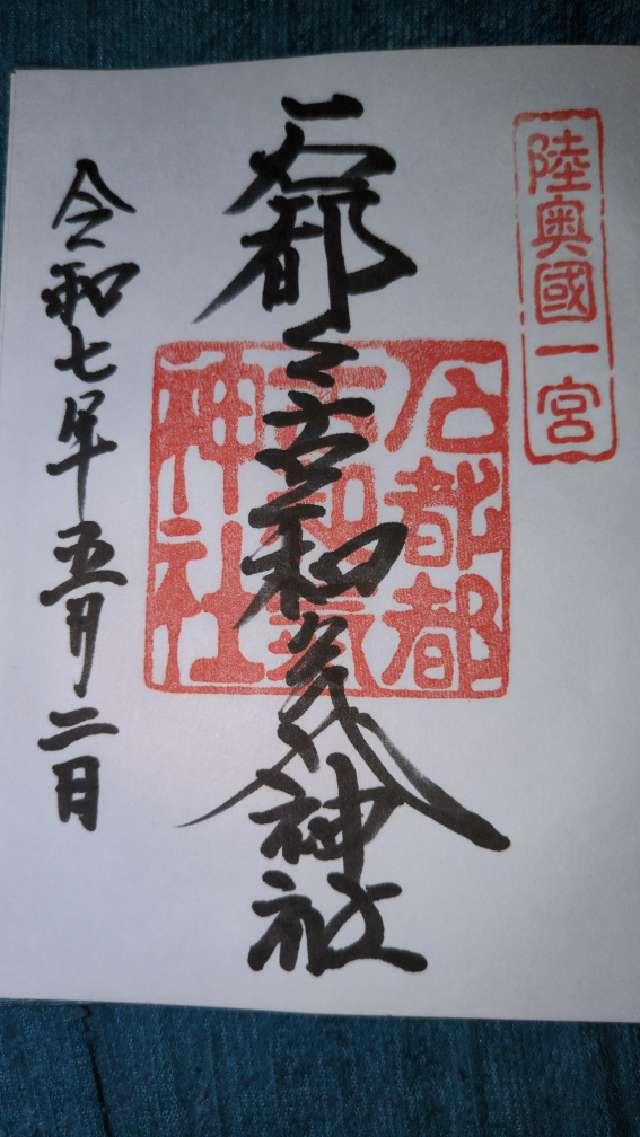 陸奥國一宮
石都々古和氣神社
石都都
古和氣
神社
令和七年五月二日